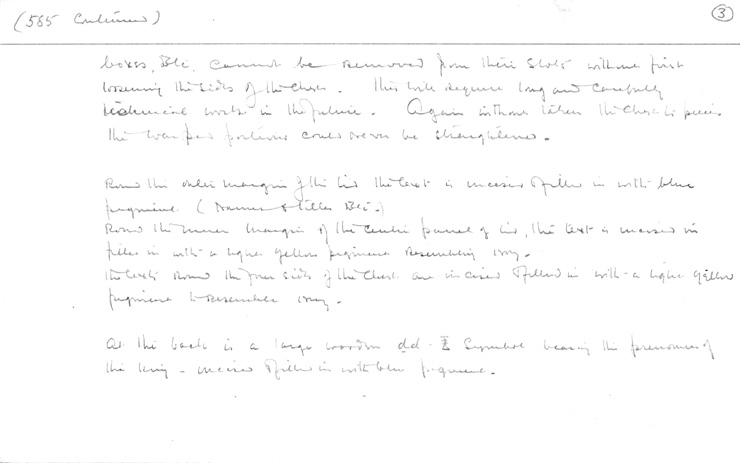 (565 Continued)
3
boxes, etc, cannot be removed from their slots without first
loosening the sides of the chest. This will require long and carefully
technical work in the future. Again without taken the chest to pieces
the warped portions could never be strengthened.
Round the outer margin of the lid the text is incised & filled in with blue
pigment (Names & titles etc.)
Round the inner margin of the centre panel of lid, the text is incised in
filled in with a light yellow pigment resembling ivory.
the texts round the four sides of the chest are incised & filled in with a light yellow
pigment to resemble ivory.
At the back is a large wooden dd symbol bearing the prenomen of
the king - incised & filled in with blue pigment.